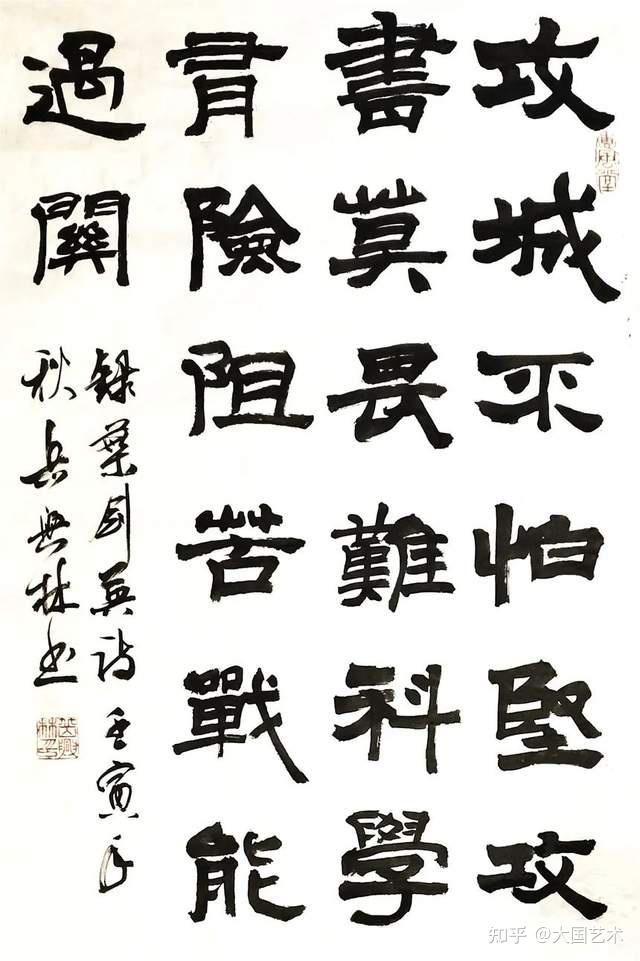 攻城不怕堅攻
書莫畏難科學
有險阻苦戰能
過關
錄葉劍英詩 壬寅年
秋岳興林書
知乎 @大国艺术